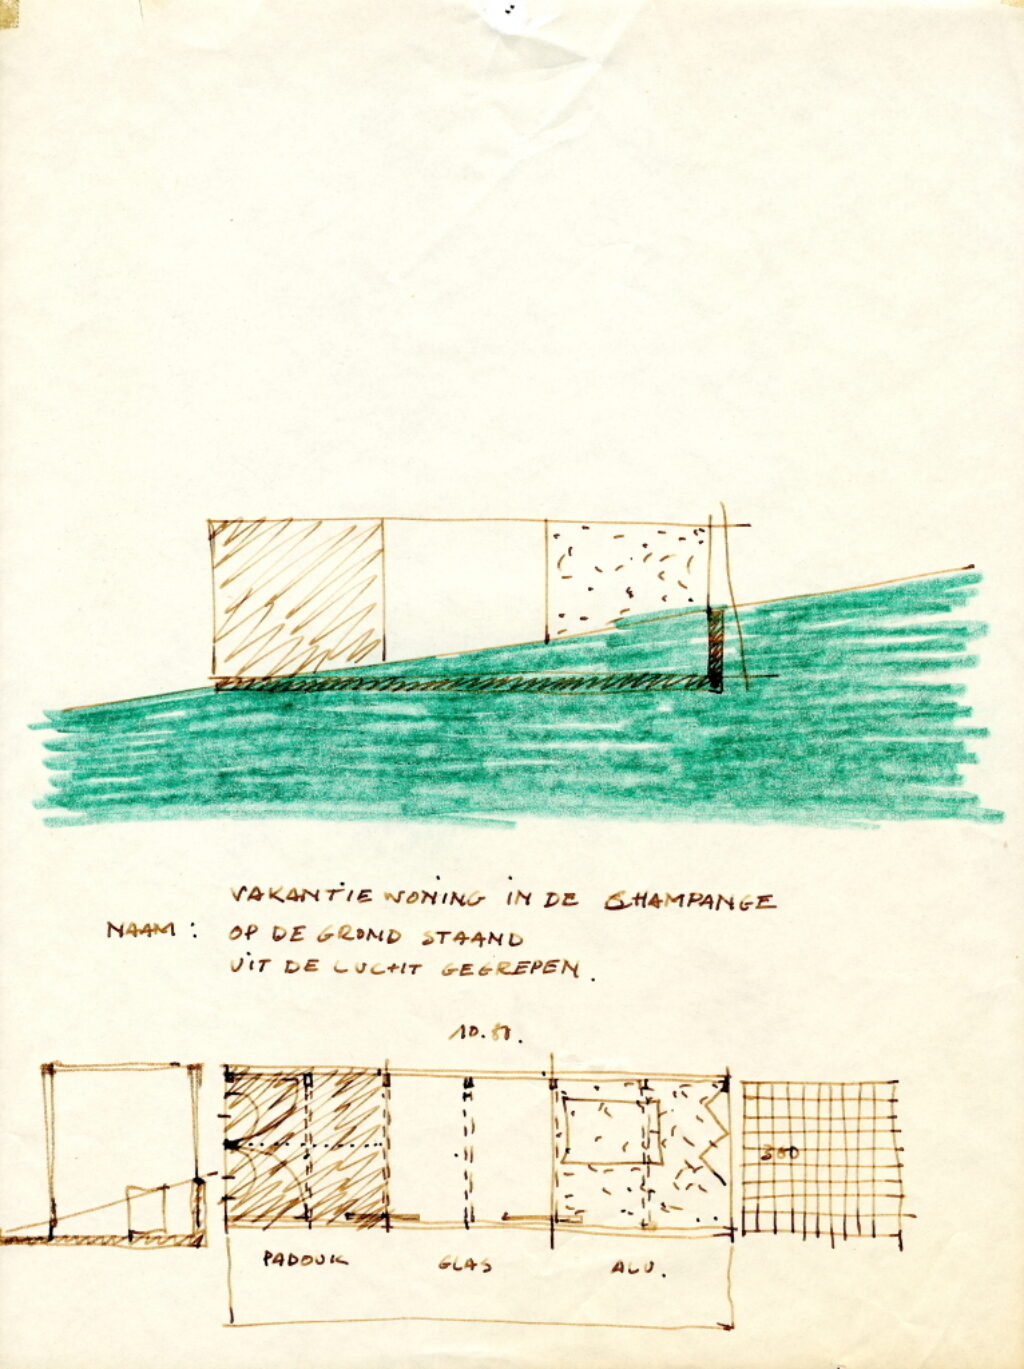 VAKANTIE WONING IN DE CHAMPANGE
NAAM: OP DE GROND STAAND
UIT DE LUCHT GEGREPEN.
300
PADOUK GLAS ALU.